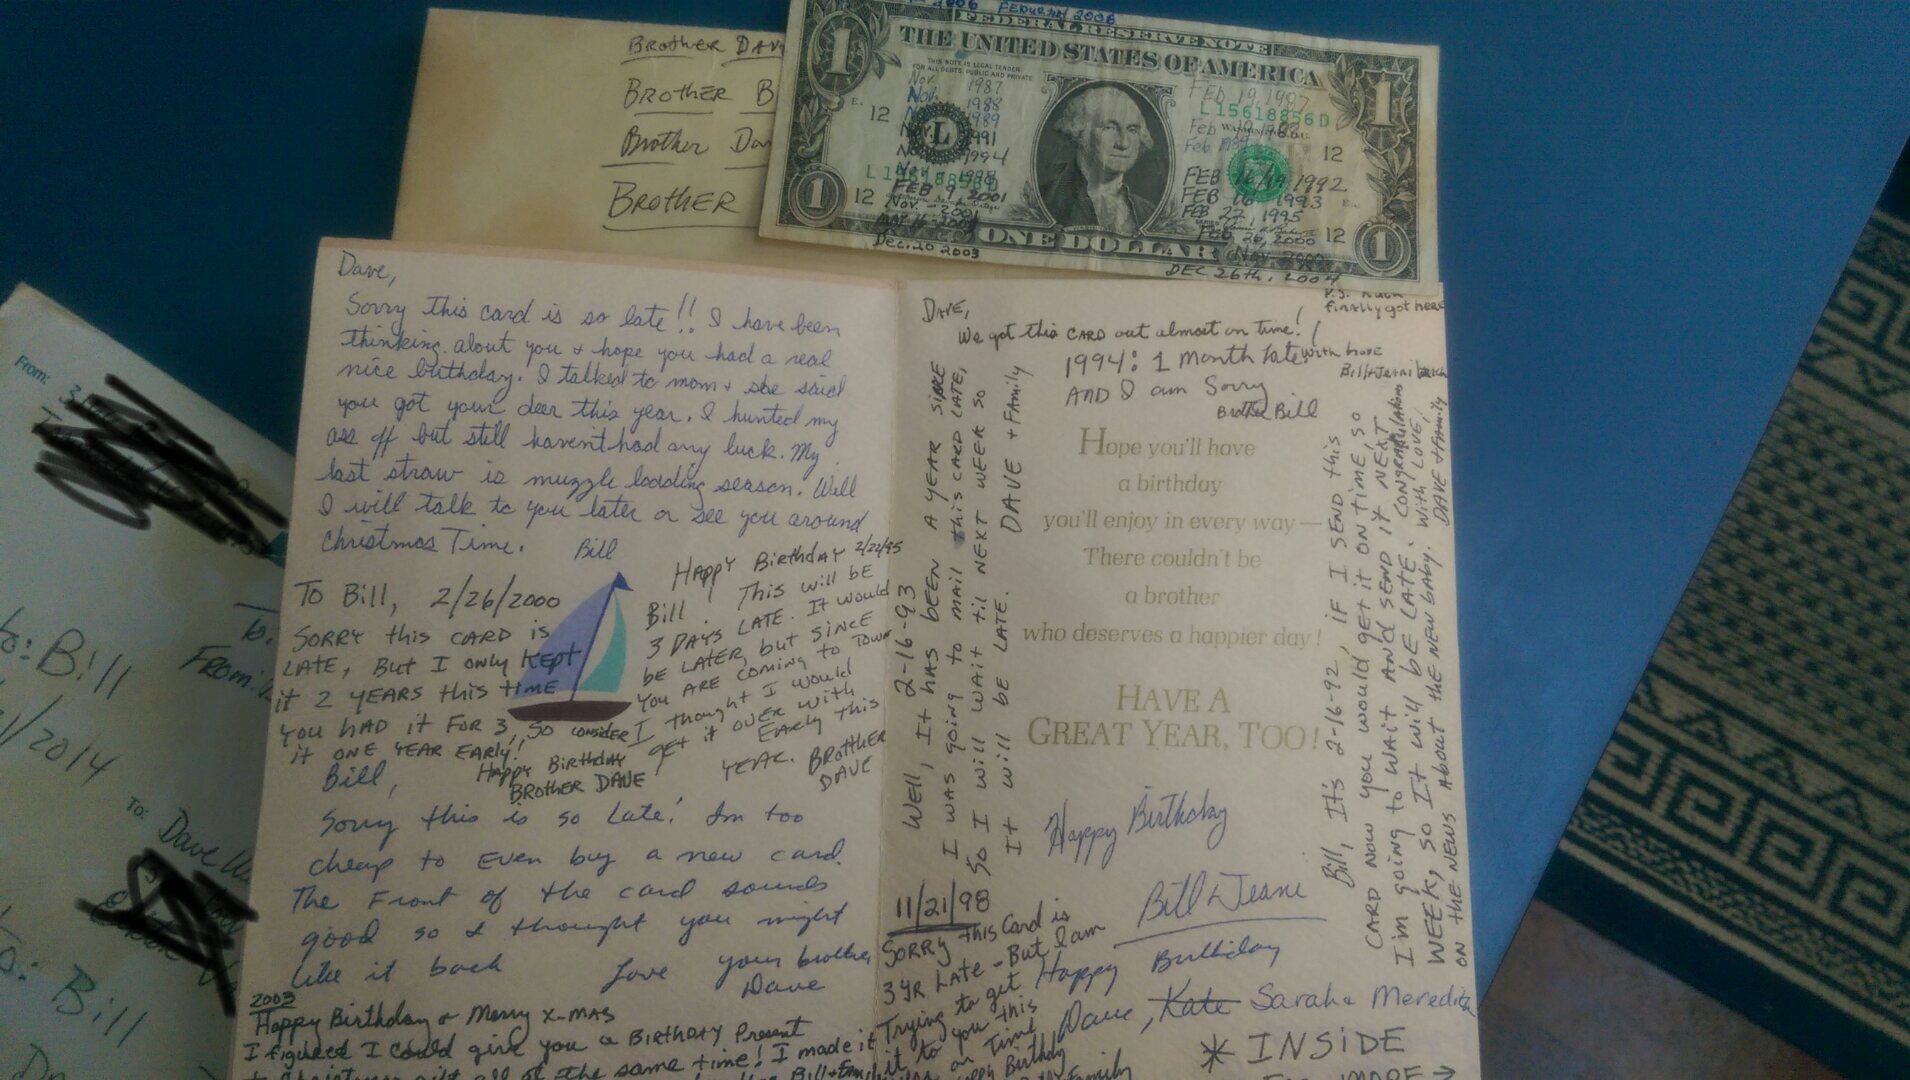 Brother Dav
Brother B
Brother Dav
Brother
2006
1
FEDERAL RESERVE NOTE
THE UNITED STATES OF AMERICA
1
THIS NOTE IS LEGAL TENDER
FOR ALL DEBTS, PUBLIC AND PRIVATE
Nov. 1987
Nov. 1988
1989
1991
1994
FEB 9 2001
Nov. - 2001
Dec. 20 2003
12
L
L 15618856 D
12
FEB 19, 1987
L 15618856 D
Feb
12
FEB 16/19 1992
FEB 16 1993
FEB 22, 1995
FEB 26, 2000
12
1
ONE DOLLAR
1
DEC 26th, 2004
Dave,
Sorry this card is so late!! I have been
thinking about you & hope you had a real
nice birthday. I talked to mom & she said
you got your deer this year. I hunted my
ass off but still haven't had any luck. My
last straw is muzzle loading season. Well
I will talk to you later or see you around
Christmas Time. Bill
To Bill, 2/26/2000
SORRY this CARD is
LATE, But I only KEPT
it 2 YEARS this time
YOU HAD it FOR 3, SO CONSIDER
it ONE YEAR EARLY!
Happy Birthday
BROTHER DAVE
HAPPY BIRTHDAY 2/22/95
Bill. This will be
3 DAYS LATE. It would
be LATER, but SINCE
YOU ARE coming to TOWN
I thought I would
get it over with
EARLY this
YEAR. BROTHER
DAVE
Bill,
Sorry this is so late! Im too
cheap to even buy a new card.
The Front of the card sounds
good so I thought you might
like it back Love your brother,
Dave
2003
Happy Birthday or Merry X-MAS
I figured I could give you a Birthday Present
all at the same time! I made it
DAVE,
We got this CARD out almost on time!!
P.S.
finally got here
1994: 1 Month late with love
AND I am Sorry Bill & Jeani
Brother Bill
Well, It HAS BEEN A YEAR SINCE 2-16-93
I WAS going to mail this CARD LATE,
SO I will wait til NEXT WEEK SO
It will be LATE. DAVE + FAMily
Hope you'll have
a birthday
you'll enjoy in every way—
There couldn't be
a brother
who deserves a happier day!
HAVE A
GREAT YEAR, TOO!
Bill, It's 2-16-92, if I SEND this
CARD NOW YOU would get it ON TIME, SO
I'm going to WAIT AND SEND it NEXT
WEEK, SO It will be LATE. CONGRATULATIONS
ON the NEWS ABOUT the NEW BABY. With LOVE,
DAVE + FAMILY
Happy Birthday
Bill & Jeane
Happy Birthday
Dave, Kate Sarah & Meredith
11/21/98
SORRY this Card is
3 YR LATE - But I am
Trying to get
it to you this
on Time
Happy Birthday
* INSIDE
From:
To: Bill
2014
To:
From:
To: Dave
To: Bill